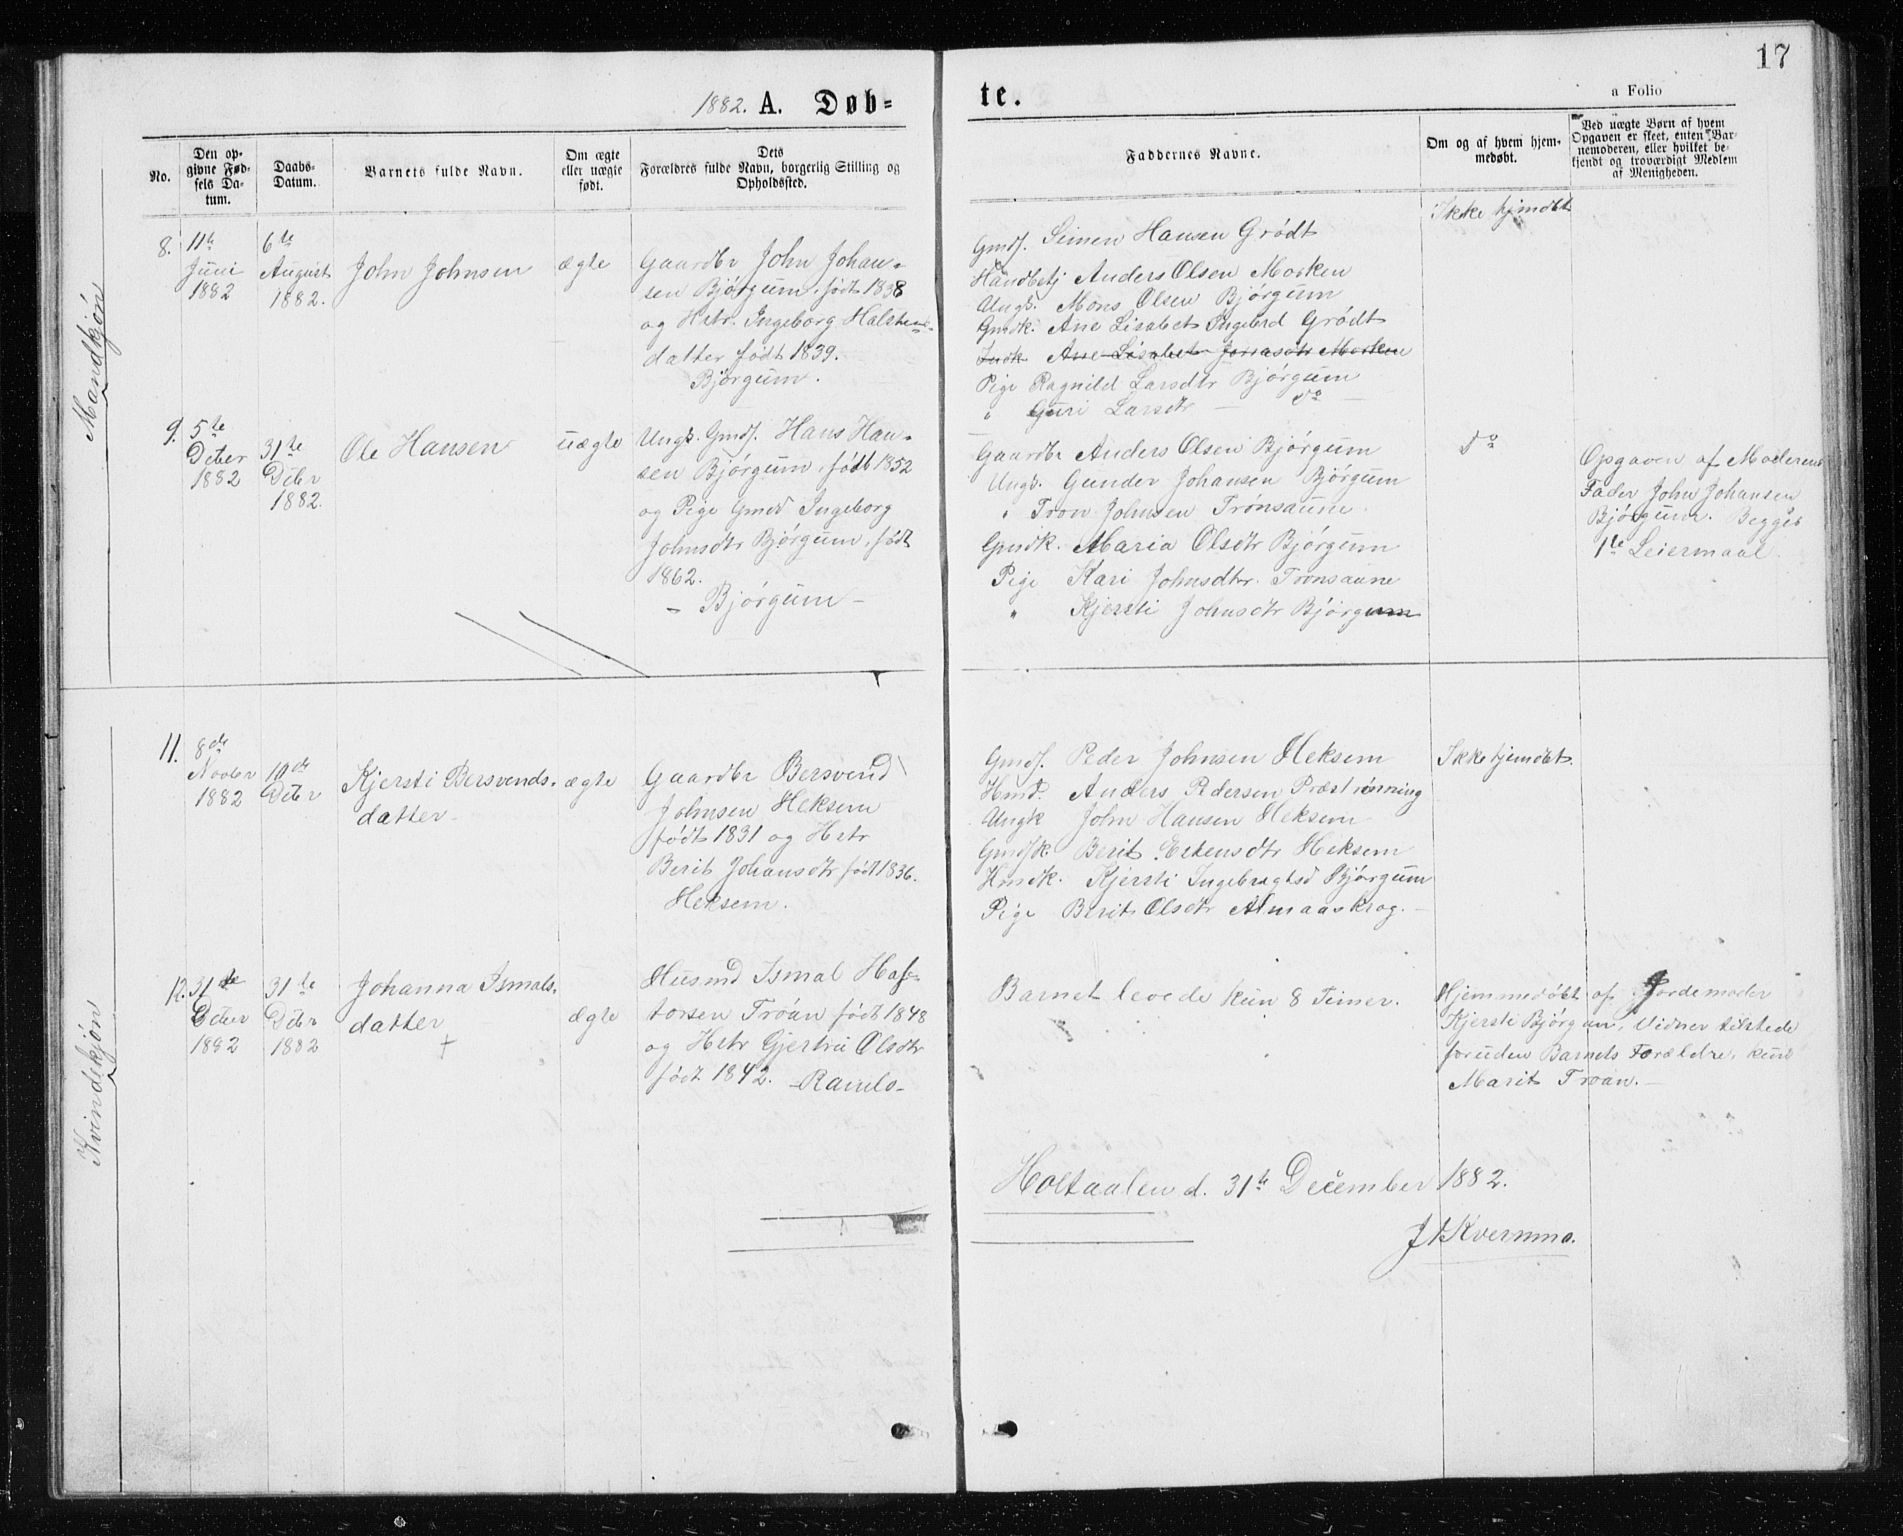 17
1882. A. Døb-
te.
a Folio
No.
Den op-
givne Fød-
sels Da-
tum.
Daabs-
Datum.
Barnets fulde Navn.
Om ægte
eller uægte
født.
Dets
Forældres fulde Navn, borgerlig Stilling og
Opholdssted.
Faddernes Navne.
Om og af hvem hjem-
medøbt.
Ved uægte Børn af hvem
Opgaven er skeet, enten Bar-
nemoderen, eller hvilket be-
kjendt og troværdigt Medlem
af Menigheden.
Mandkjøn
8.
11te
Juni
1882
6te
August
1882.
John Johnsen
ægte
Gaardbr John Johan-
sen Bjørgum, født 1838
og Hstr. Ingeborg Halsteens-
datter født 1839.
Bjørgum.
Gmdf. Simen Hansen Grødt
Anders Olsen Morken
Ungk. Mons Olsen Bjørgum
Gmdk. Ane Lisabet Ingebrd Grødt
Ane Lisabet Jonasdtr Morken
Pige Ragnild Larsdtr Bjørgum
" Guri Larsdtr — do —
Ikke hjmdøbt
9.
5te
Dcber
1882
31te
Dcbr
1882.
Ole Hansen
uægte
Ungk. Gmdf. Hans Han-
sen Bjørgum, født 1852
og Pige Gmdd Ingeborg
Johnsdtr Bjørgum, født
1862.
- Bjørgum -
Gaardbr Anders Olsen Bjørgum
Ungk. Gunder Johansen Bjørgum
" Tron Johnsen Trønsaune.
Gmdk. Maria Olsdtr Bjørgum
Pige Kari Johnsdtr. Trønsaune
" Kjersti Johnsdtr Bjørgum
do
Opgaven af Moderens
Fader John Johansen
Bjørgum. Begges
1te Leiermaal.
Kvindekjøn
11.
8de
Novbr
1882
10de
Dcbr
Kjersti Bersvends-
datter
ægte
Gaardbr Bersvend
Johnsen Heksem
født 1831 og Hstr
Berit Johansdtr født 1836.
Heksem.
Gmdf. Peder Johnsen Heksem
Hmd. Anders Pedersen Præstrønning
Ungk John Hansen Heksem
Gmdfk. Berit Estensdtr Heksem
Hmdk. Kjersti Ingebragtsd Bjørgum
Pige Berit Olsdtr Almaaskrog. —
Ikke hjemdøbt.
12.
31te
Dcber
1882
31te
Dcbr
1882
Johanna Ismals-
datter
†
ægte
Husmd Ismal Haf-
torsen Troån født 1848
og Hstr Gjertru Olsdtr
født 1842. - Ramlo -
Barnet levede kun 8 Timer.
Hjemmedøbt af Jordemoder
Kjersti Bjørgum, Vidner tilstede
foruden Barnets Forældre, kun
Marit Troån. —
Holtaalen d. 31te December 1882.
J Kvernmo.